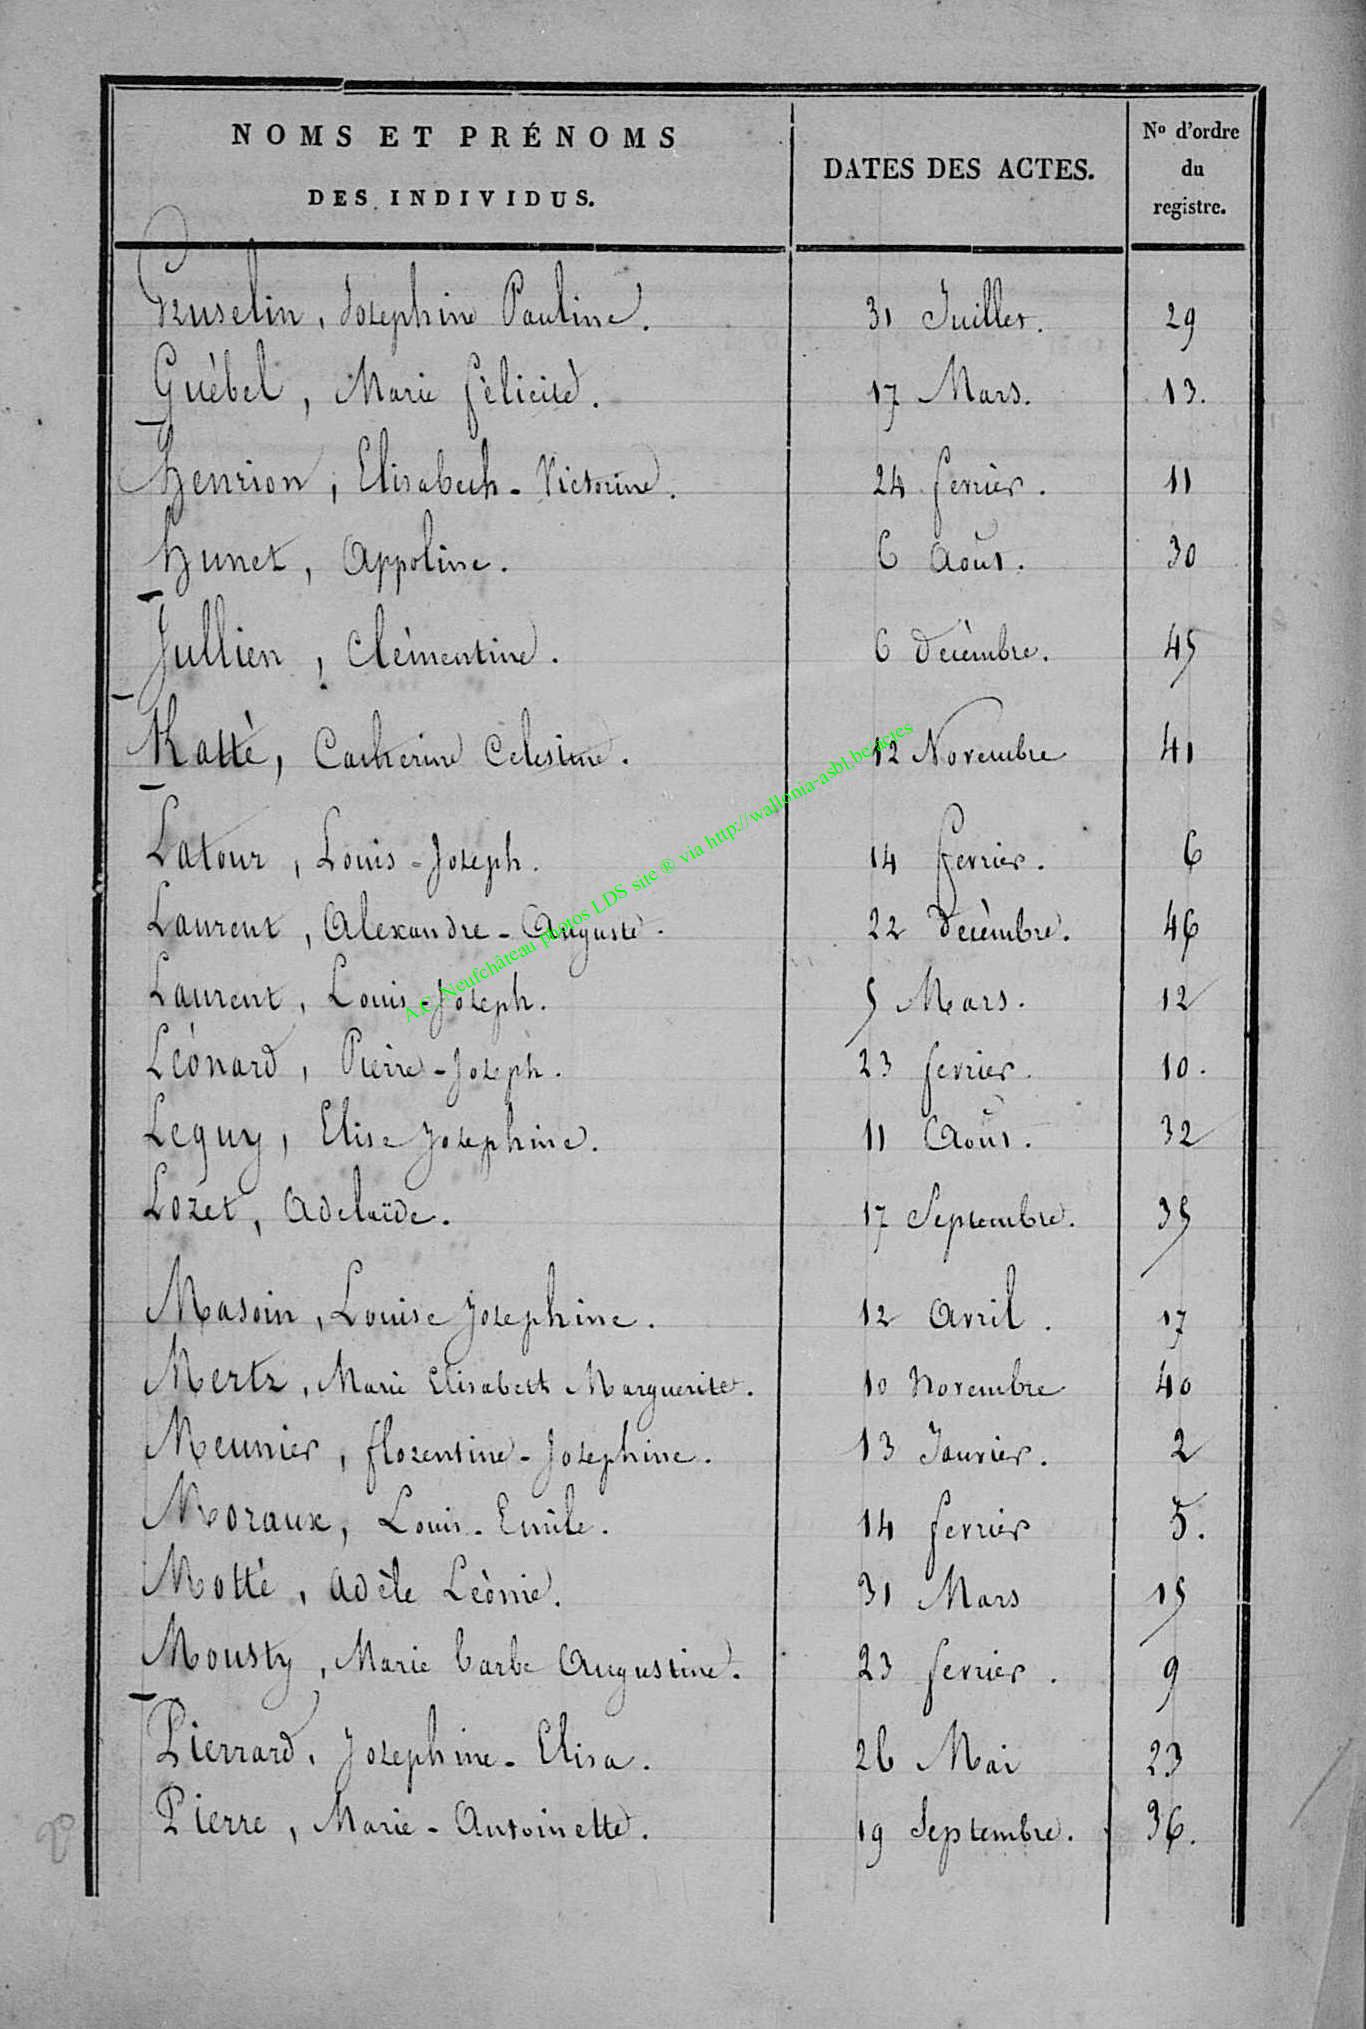 NOMS ET PRÉNOMS
DES INDIVIDUS.
DATES DES ACTES.
No d'ordre
du
registre.
Gruselin, Josephine Pauline. 31 Juillet. 29
Guèbel, Marie félicité. 17 Mars. 13.
henrion, Elisabeth-Victorine. 24 fevrier. 11
hunet, Appoline. 6 Août. 30
Jullien, Clèmentine. 6 Decèmbre. 45
Kattè, Catherine Celestine. 12 Novembre 41
Latour, Louis-Joseph. 14 fevrier. 6
Laurent, Alexandre-Auguste. 22 Decèmbre. 46
Laurent, Louis-Joseph. 5 Mars. 12
Léonard, Pierre-Joseph. 23 fevrier. 10.
Leguy, Elise Josephine. 11 Août. 32
Lozet, Adelaïde. 17 Septembre. 35
Masoin, Louise Josephine. 12 Avril. 17
Mertz, Marie Elisabeth Marguerite. 10 Novembre 40
Meunier, florentine-Josephine. 13 Janvier. 2
Moraux, Louis-Emile. 14 fevrier 5.
Mottè, Adèle Lèonie. 31 Mars 15
Mousty, Marie barbe Augustine. 23 fevrier. 9
Pierrard, Josephine-Elisa. 26 Mai 23
Pierre, Marie-Antoinette. 19 Septembre. 36.
A.C. Neufchâteau photos LDS site ® via http://wallonia-asbl.be/actes